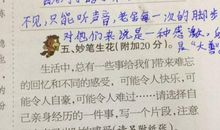 不见,只能听声音,老宫每一次的脚步
对他们来说是一种感触,
五、妙笔生花(附加20分)。
生活中,总有一些事给我们带来难忘
的回忆和不同的感受,可能令人快乐,可
能令人自豪,可能令人难过……请选择自
己亲身经历的一件事,写一个片段,注意